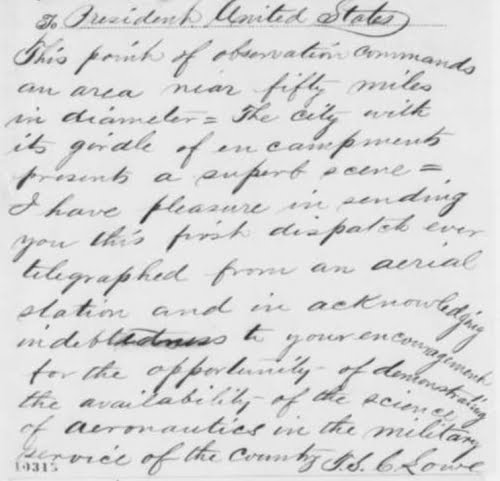 To President United States
This point of observation commands
an area near fifty miles
in diameter = The city with
its girdle of encampments
presents a superb scene =
I have pleasure in sending
you this first dispatch ever
telegraphed from an aerial
station and in acknowledging
indebtedness to your encouragement
for the opportunity of demonstrating
the availability of the science
of aeronautics in the military
service of the country T.S.C. Lowe
10315